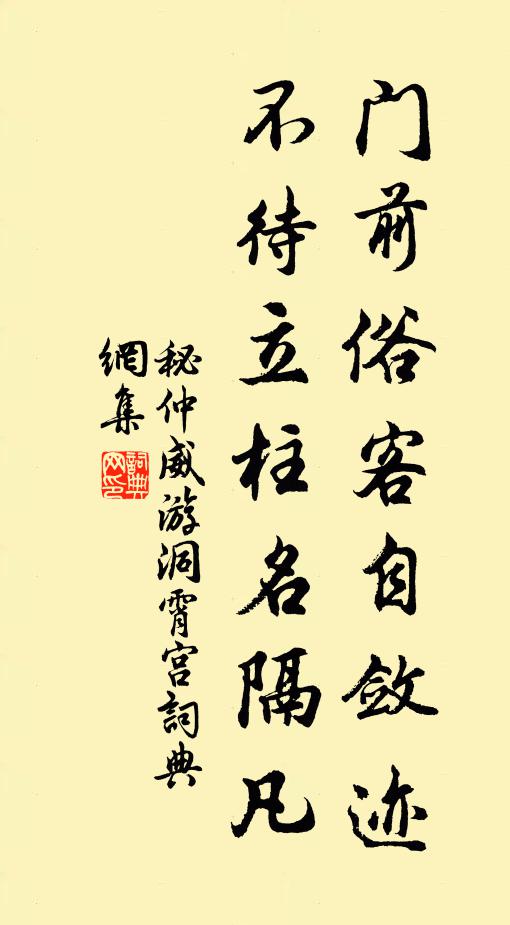 门前俗客自敛迹
不待立柱名隔凡
秘仲威游洞霄宫詞典
網集
詞典
网印